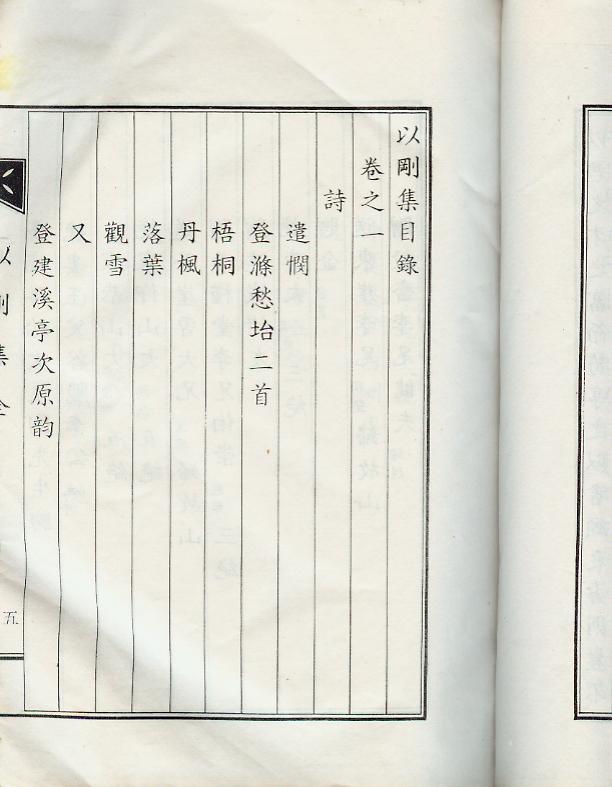 以剛集目錄
卷之一
詩
遣憫
登滌愁坮二首
梧桐
丹楓
落葉
觀雪
又
登建溪亭次原韵
以剛集全
五